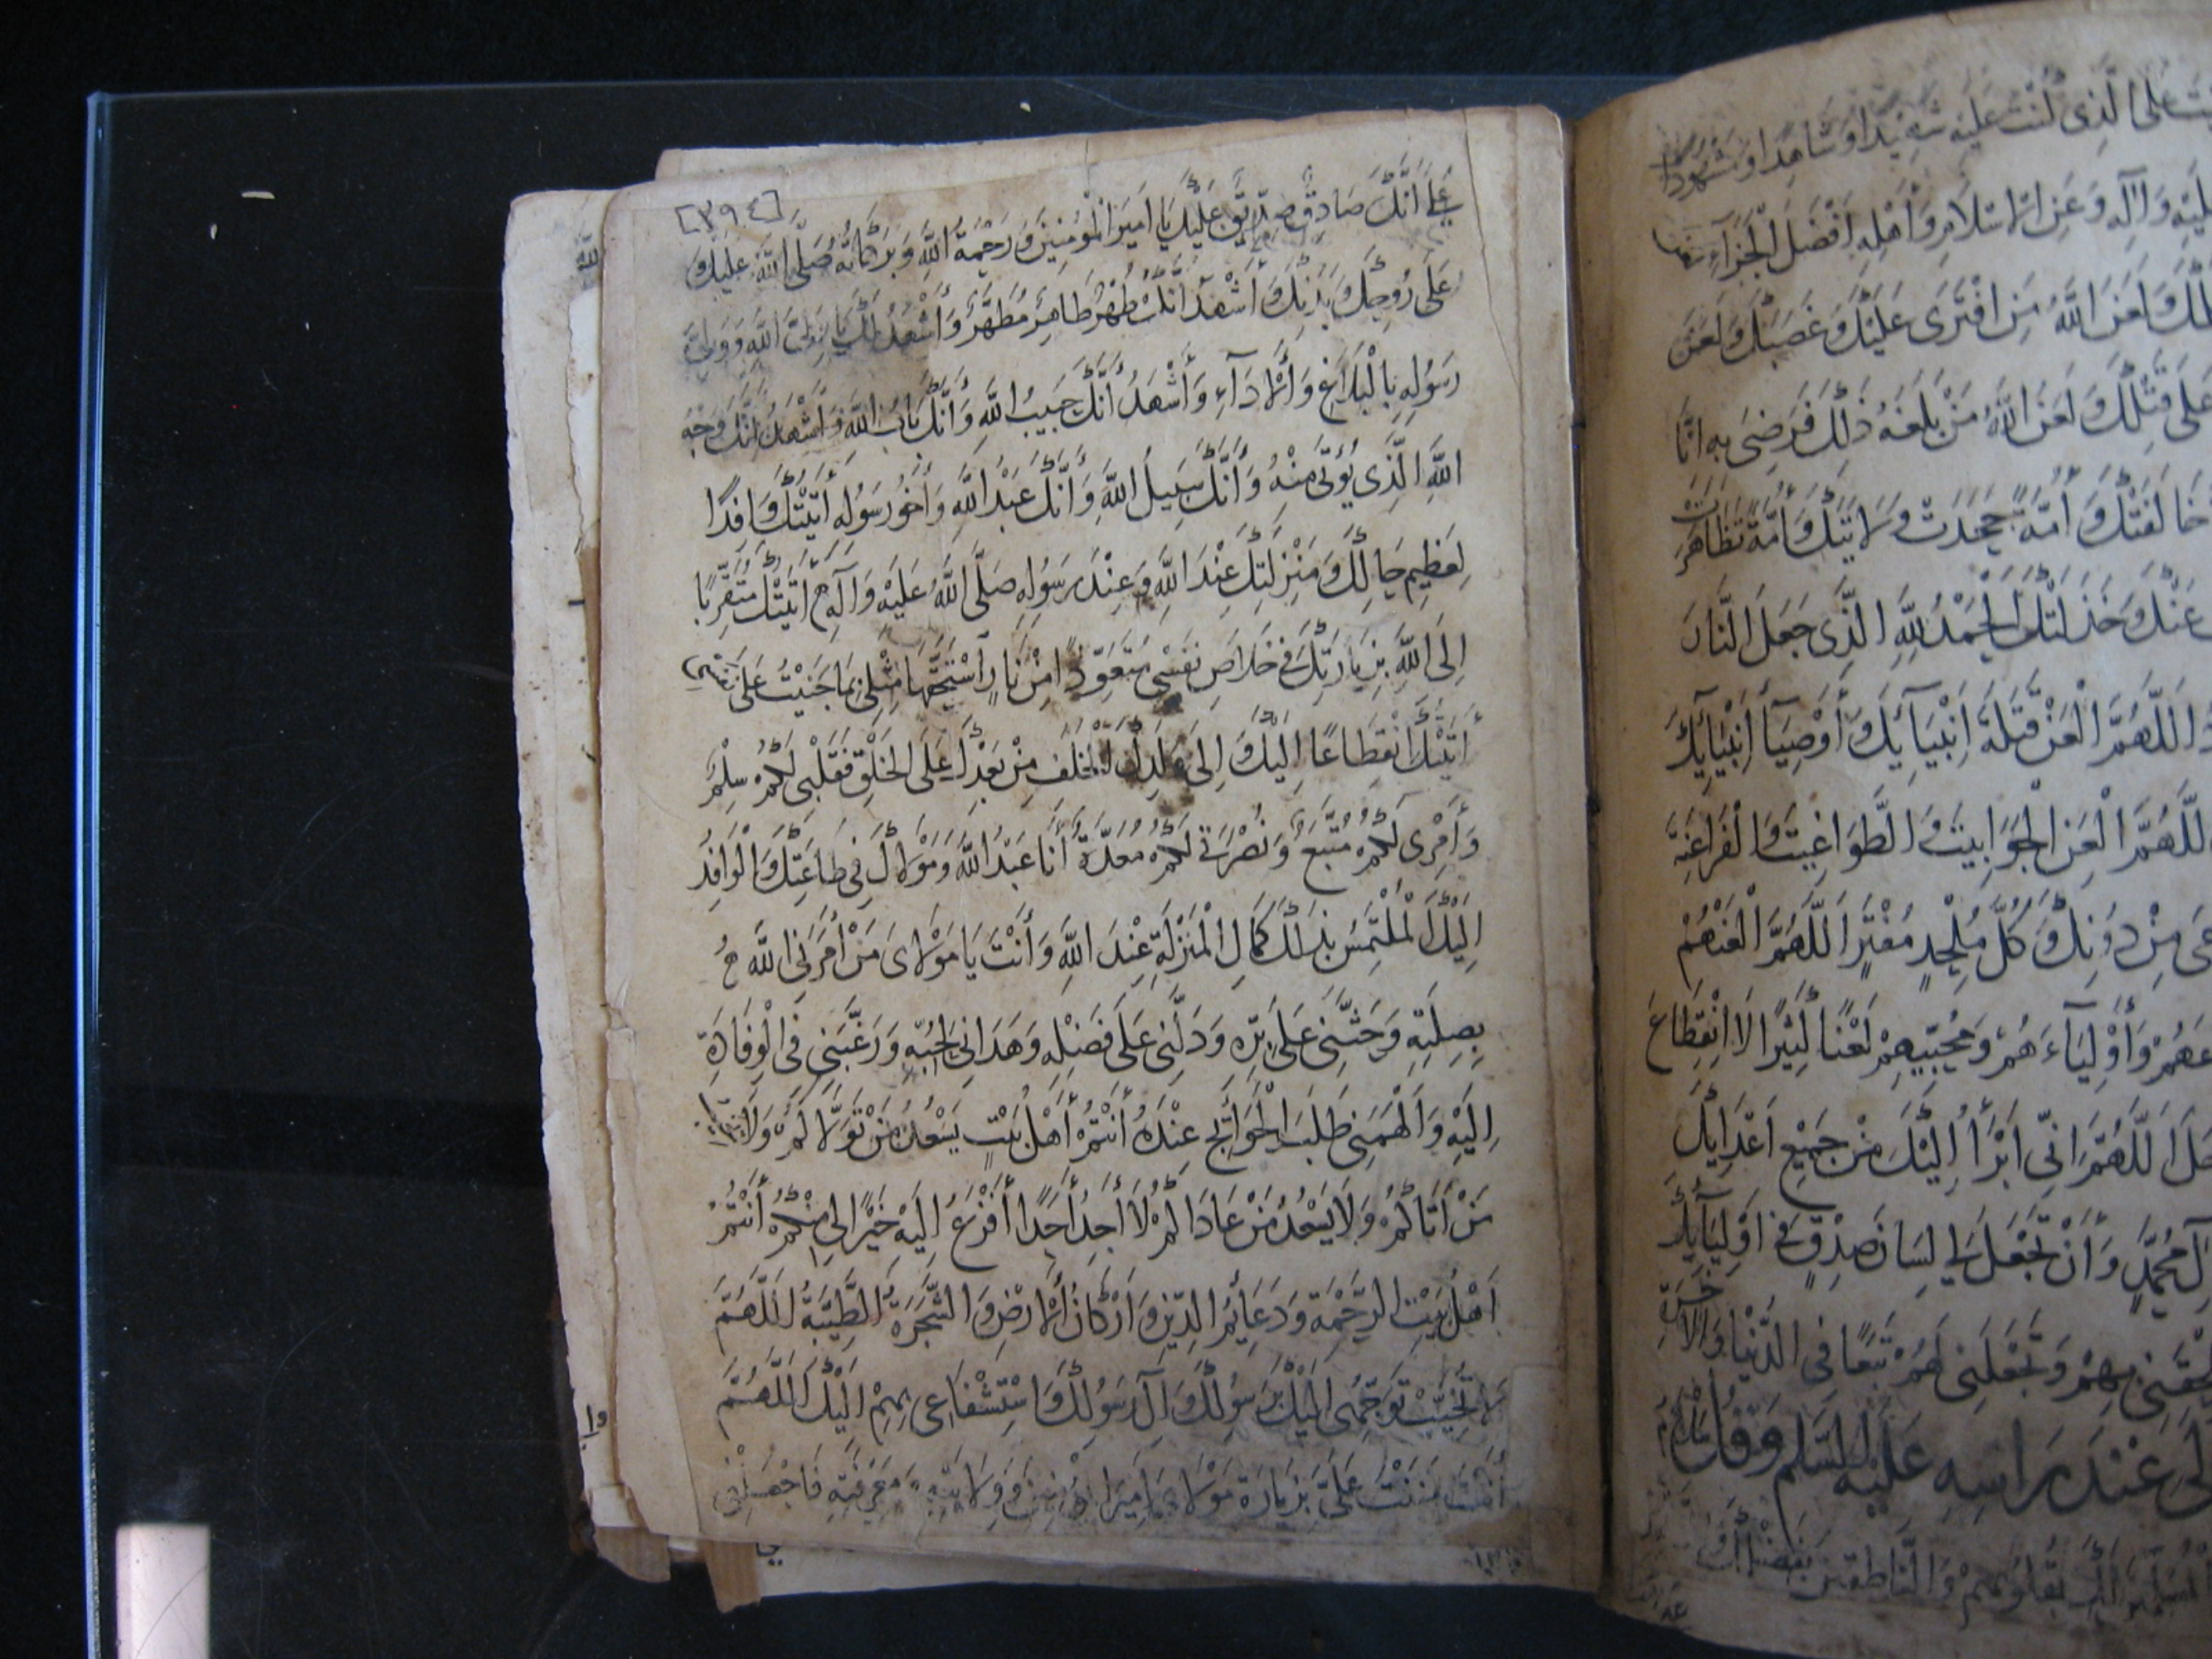 ت على الذي كنت عليه شهيدا وشاهدا ومشهودا
ليه وآله وعن الإسلام وأهله أفضل الجزاء
لك ولعن الله من افترى عليك وغصبك ولعن
على قتلك ولعن الله من بلغه ذلك فرضى به انا
خالفتك وأمة جحدت ولايتك وأمة تظاهرت
عنك وخذلتك الحمد لله الذي جعل النار
اللهم العن قتلة انبيائك وأوصيآء أنبيائك
اللهم العن الجوابيت والطواغيت والفراعنة
عى من دونك وكل ملحد مفتر اللهم العنهم
عهم وأوليآءهم ومحبيهم لعنا كثيرا لا انقطاع
جل اللهم اني أبرأ إليك من جميع اعدائك
آل محمد وأن تجعل لي لسان صدق في اوليآئك
لحقني بهم وتجعلني لهم تبعا في الدنيا والآخرة
عند راسه عليه السلم وقل
بقلوبهم والناطقين بفضلك
[٣٩٤]
على أنك صادق صديق عليك يا امير المؤمنين ورحمة الله وبركاته صلى الله عليك و
على روحك وبدنك وأشهد أنك طهر طاهر مطهر وأشهد لك يا ولي الله وولي
رسوله بالبلاغ والأدآء وأشهد أنك حبيب الله وأنك باب الله وأشهد أنك وجه
الله الذي يؤتى منه وأنك سبيل الله وأنك عبد الله وأخو رسوله أتيتك وافدا
لعظيم حالك ومنزلتك عند الله وعند رسوله صلى الله عليه وآله أتيتك متقربا
إلى الله بزيارتك في خلاص نفسي متعوذا من نار استحقها مثلي بما جنيت على نفسي
أتيتك انقطاعا إليك وإلى ولدك الخلف من بعدك على الخلق فقلبي لكم سلم
وأمري لكم متبع ونصرتي لكم معدة أنا عبد الله ومولاك في طاعتك والوافد
إليك الملتمس بذلك كمال المنزلة عند الله وأنت يا مولاى من أمرني الله
بصلته وحثني على بره ودلني على فضله وهداني لحبه ورغبني في الوفادة
إليه وألهمني طلب الحوائج عنده أنتم أهل بيت يسعد من تولاكم ولا يخيب
من أتاكم ولا يسعد من عاداكم لا أجد أحدا أفزع إليه خيرا لي منكم أنتم
أهل بيت الرحمة ودعائم الدين واركان الأرض والشجرة الطيبة اللهم
لا تخيب توجهي إليك برسولك وآل رسولك واستشفاعي بهم إليك اللهم
أنت مننت على بزيارة مولاى امير المؤمنين وولايته ومعرفته فاجعلني